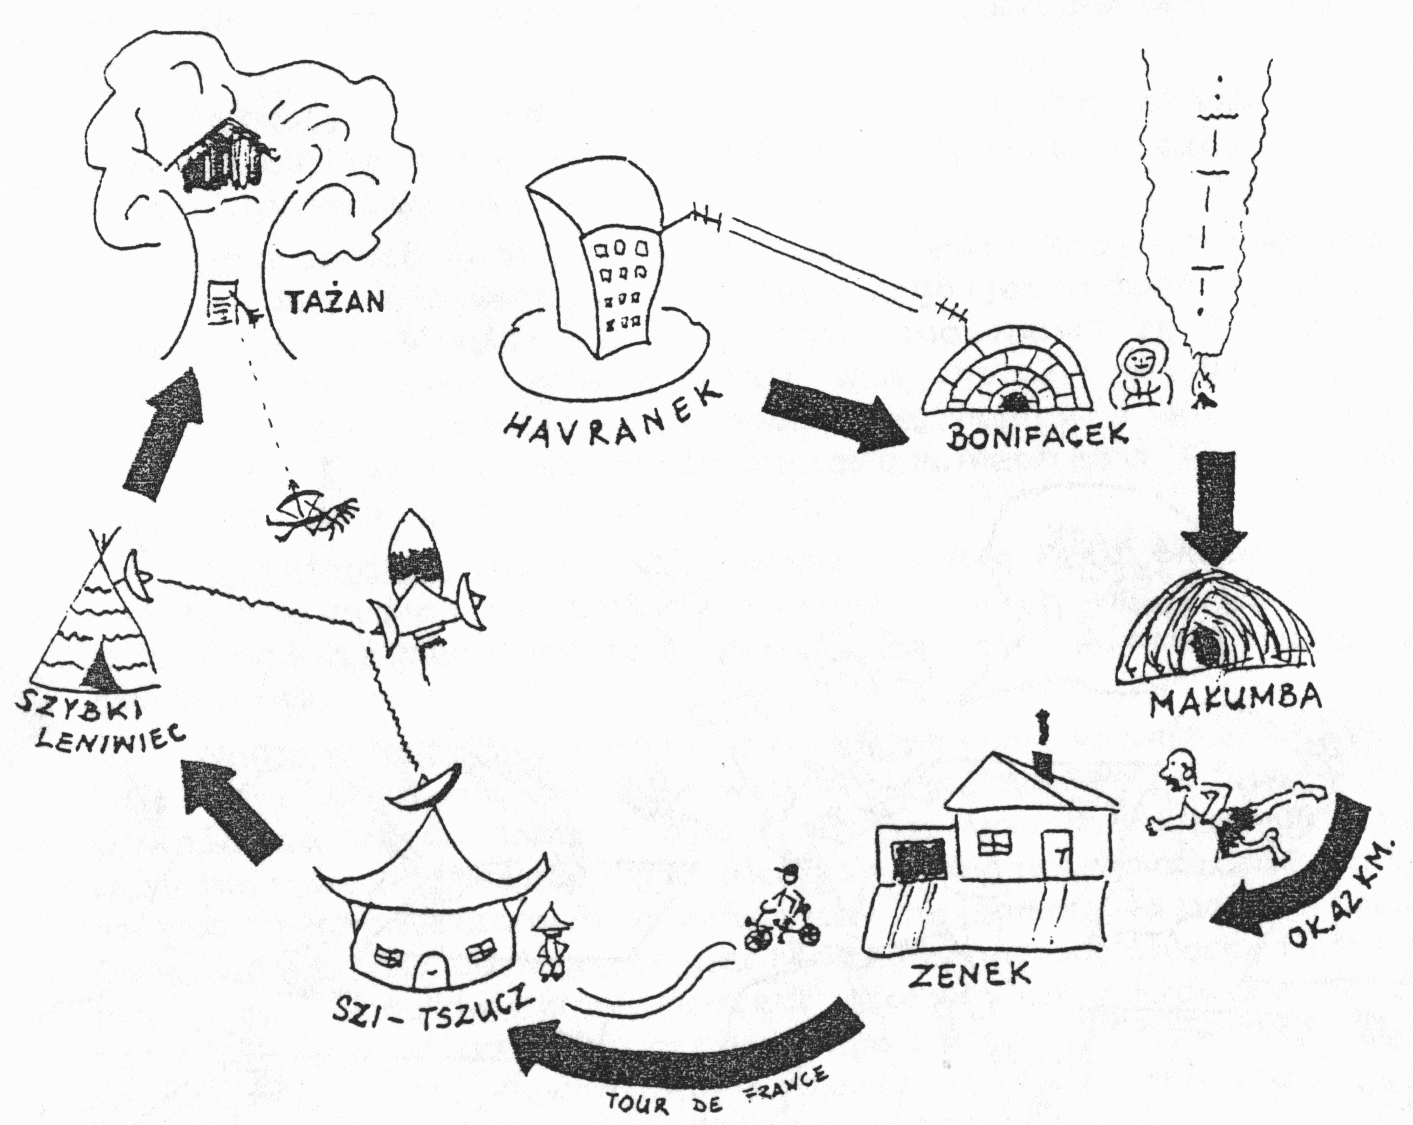 TAŻAN
HAVRANEK
BONIFACEK
MAKUMBA
OK. 42 KM.
ZENEK
TOUR DE FRANCE
SZI-TSZUCZ
SZYBKI
LENIWIEC